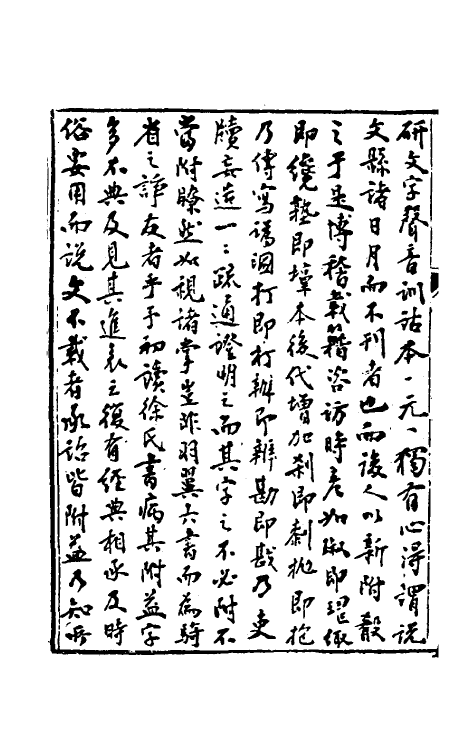 研文字聲音訓詁本一元一獨有心得謂說
文縣諸日月而不刊者也而後人以新附殽
之于是博稽載籍咨訪時彥如琡即琩㒟
即繞塾即𡓐本後代增加刹即刹拋即抱
乃傳寫譌溷打即朾辦即辨勘即戡乃吏
牘妄造一二疏通證明之而其字之不必附不
當附瞭然如視諸掌豈非羽翼六書而為騎
省之諍友者乎予初讀徐氏書病其附益字
多不典及見其進表云復有經典相承及時
俗要用而說文不載者承詔皆附益乃知所